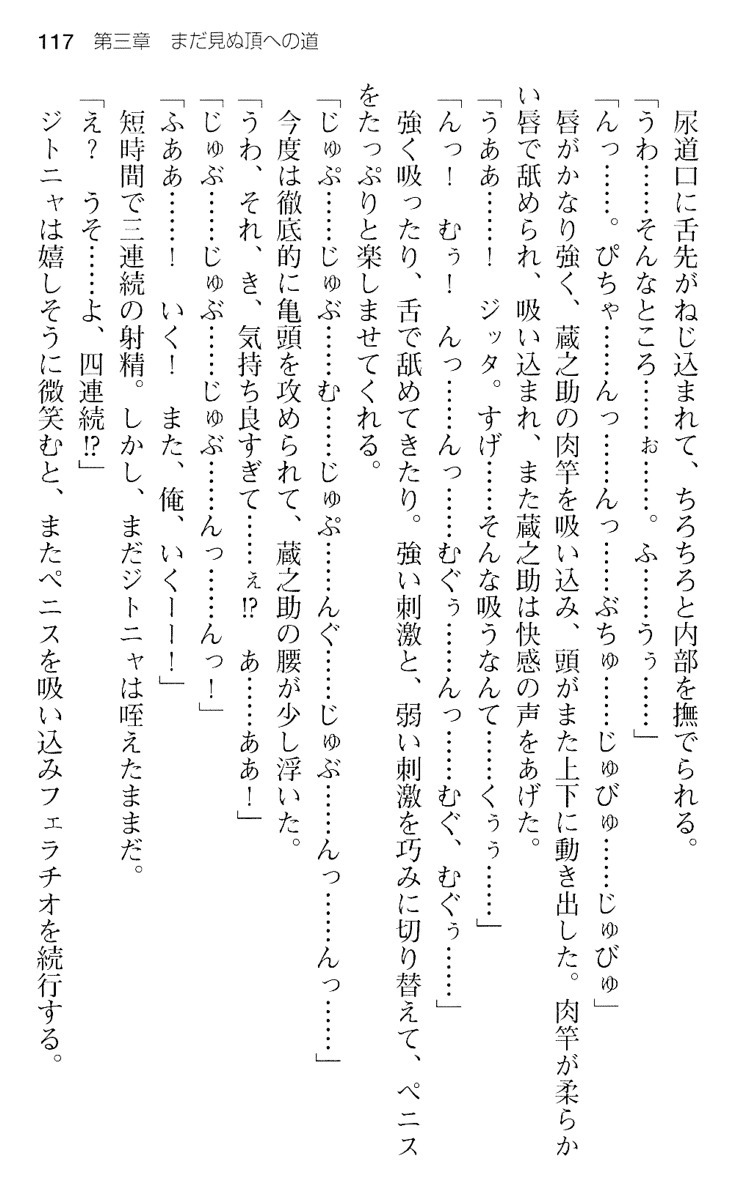 117 第三章　まだ見ぬ頂への道
尿道口に舌先がねじ込まれて、ちろちろと内部を撫でられる。
「うわ……そんなところ……ぉ……。ふ……うぅ……」
「んっ……。ぴちゃ……んっ……んっ……ぶちゅ……じゅびゅ……じゅびゅ」
唇がかなり強く、蔵之助の肉竿を吸い込み、頭がまた上下に動き出した。肉竿が柔らか
い唇で舐められ、吸い込まれ、また蔵之助は快感の声をあげた。
「うああ……！　ジッタ。すげ……そんな吸うなんて……くぅぅ……」
「んっ！　むぅ！　んっ……んっ……むぐぅ……んっ……むぐ、むぐぅ……」
強く吸ったり、舌で舐めてきたり。強い刺激と、弱い刺激を巧みに切り替えて、ペニス
をたっぷりと楽しませてくれる。
「じゅぷ……じゅぶ……む……じゅぷ……んぐ……じゅぶ……んっ……んっ……」
今度は徹底的に亀頭を攻められて、蔵之助の腰が少し浮いた。
「うわ、それ、き、気持ち良すぎて……ぇ!?　あ……ああ！」
「じゅぶ……じゅぶ……じゅぶ……んっ……んっ！」
「ふああ……！　いく！　また、俺、いくーー！」
短時間で三連続の射精。しかし、まだジトニャは咥えたままだ。
「え？　うそ……よ、四連続!?」
ジトニャは嬉しそうに微笑むと、またペニスを吸い込みフェラチオを続行する。